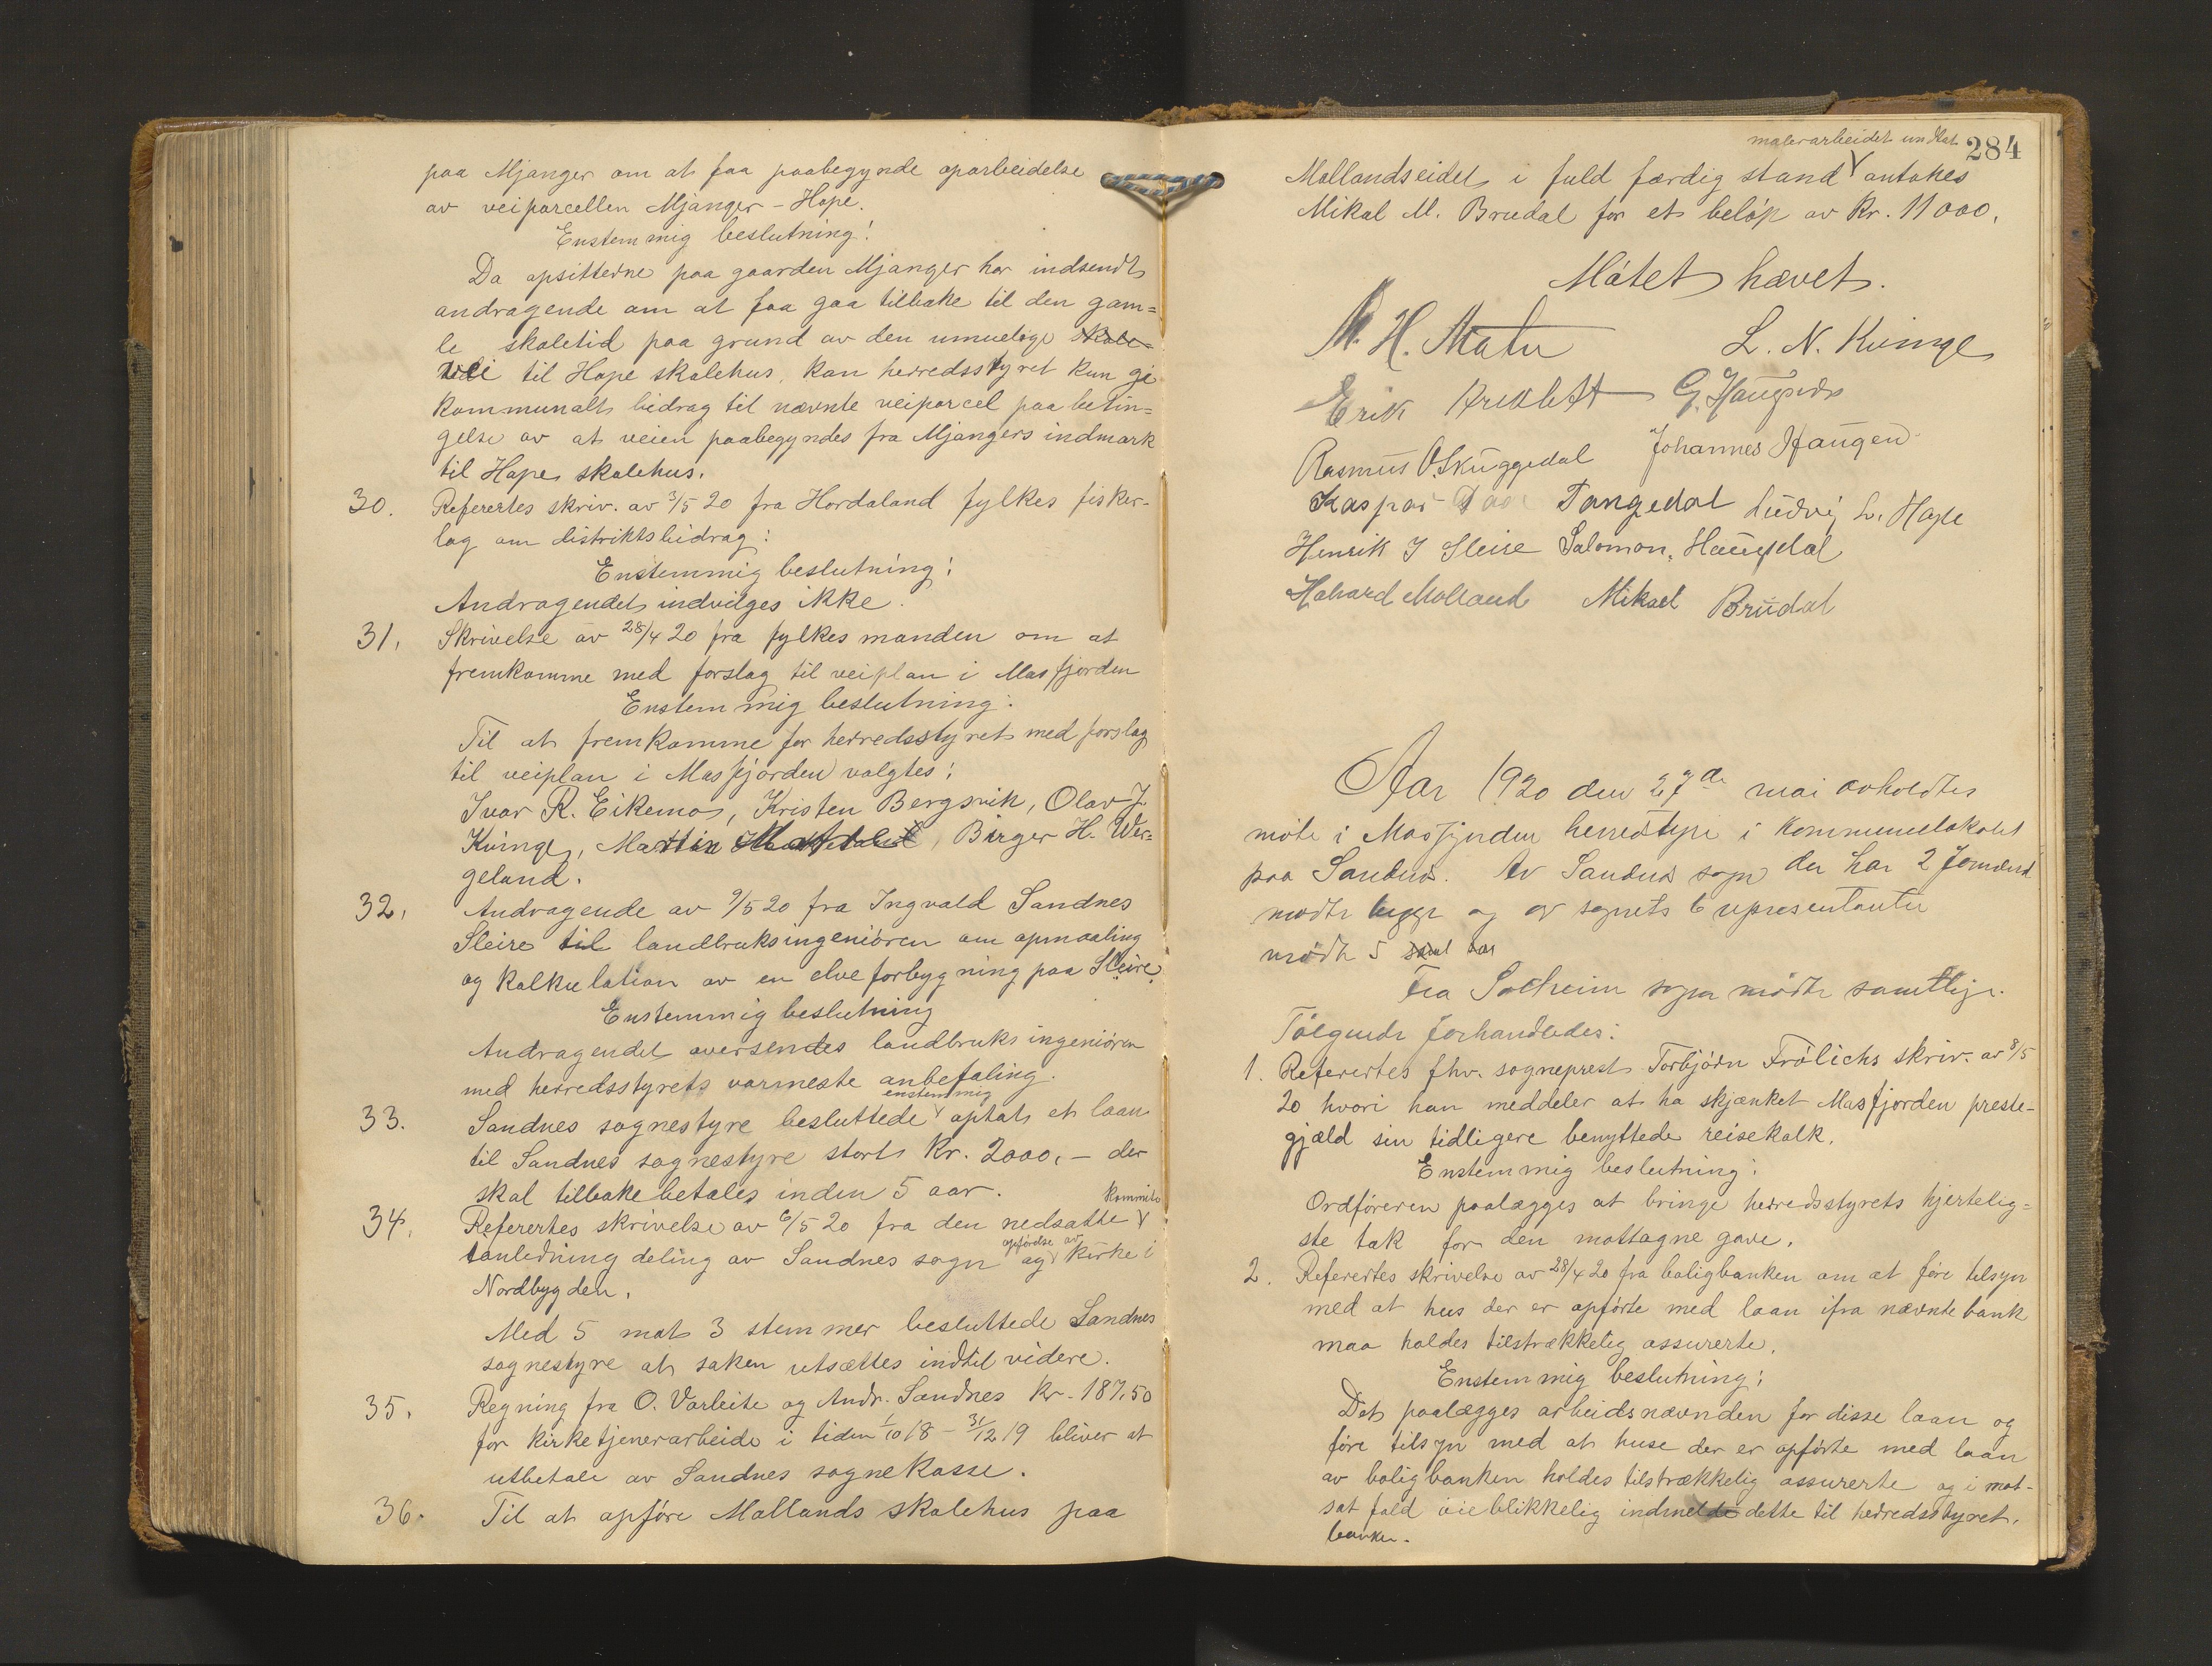 paa Mjanger om at faa paabegynde oparbeidelse
av veiparcellen Mjanger - Hope.
Enstemmig beslutning:
Da opsitterne paa gaarden Mjanger har indsendt
andragende om at faa gaa tilbake til den gam=
le skoletid paa grund av den umuelige skole-
vei til Hope skolehus, kan herredsstyret kun gi
kommunalt bidrag til nævnte veiparcel paa betin=
gelse av at veien paabegyndes fra Mjangers indmark
til Hope skolehus.
30. Referertes skriv. av 3/5 20 fra Hordaland fylkes fisker-
lag om distriktsbidrag:
Enstemmig beslutning:
Andragendet indvilges ikke.
31. Skrivelse av 28/4 20 fra fylkesmanden om at
fremkomme med forslag til veiplan i Masfjorden
Enstemmig beslutning:
Til at fremkomme for herredsstyret med forslag
til veiplan i Masfjorden valgtes:
Ivar R. Eikemo, Kristen Bergsvik, Olav J.
Kvinge, Martin, Birger H. Wer=
geland.
32. Andragende av 9/5 20 fra Ingvald Sandnes
Sleire til landbruksingeniøren om opmaaling
og kalkulation av en elveforbygning paa Sleire.
Enstemmig beslutning
Andragendet oversendes landbruksingeniøren
med herredsstyrets varmeste anbefaling.
enstemmig
33. Sandnes sognestyre besluttede optat et laan
til Sandnes sognestyre stort Kr. 2000,- der
skal tilbakebetales inden 5 aar.
Kommite
34. Referertes skrivelse av 6/5 20 fra den nedsatte
opførelse av
i anledning deling av Sandnes sogn og kirke i
Nordbygden.
Med 5 mot 3 stemmer besluttede Sandnes
sognestyre at saken utsættes indtil videre.
35. Regning fra O. Varleite og Andr. Sandnes Kr. 187,50
for kirketjenerarbeide i tiden 1/10 18 - 31/12 19 bliver at
utbetale av Sandnes sognekasse.
36. Til at opføre Mollands skolehus paa
284
malerarbeidet undtat
Mollandseidet i fuld færdig stand antokes
Mikal M. Brudal for et beløp av Kr. 11000.
Møtet hævet.
M. H. Matre L. N. Kvinge
Erik G. Haugsvær
Rasmus O. Skuggedal Johannes Haugen
Kaspar Tangedal Ludvig L. Hope
Henrik J Sleire Salomon. Haugsdal
Halvard Molland Mikael Brudal
Aar 1920 den 27de mai avholdtes
møte i Masfjorden herredstyre i kommunelokalet
paa Sandnes. Av Sandnes sogn der har 2 formænd
mødte begge og av sognets 6 representanter
mødte 5
Fra Solheim sogn mødte samtlige.
Følgende forhandledes:
1. Referertes fhv. sogneprest Torbjørn Frølichs skriv. av 8/5
20 hvori han meddeler at ha skjænket Masfjorden preste-
gjæld sin tidligere benyttede reisekalk.
Enstemmig beslutning:
Ordføreren paalægges at bringe herredsstyrets hjertelig=
ste tak for den mottagne gave.
2. Referertes skrivelse av 28/4 20 fra boligbanken om at føre tilsyn
med at hus der er opførte med laan ifra nævnte bank
maa holdes tilstrækkelig assurerte.
Enstemmig beslutning:
Det paalægges arbeidsnævnden for disse laan og
føre tilsyn med at huse der er opførte med laan
av boligbanken holdes tilstrækkelig assurerte og i mot-
sat fald øieblikkelig indmelde dette til herredsstyret.
banken.